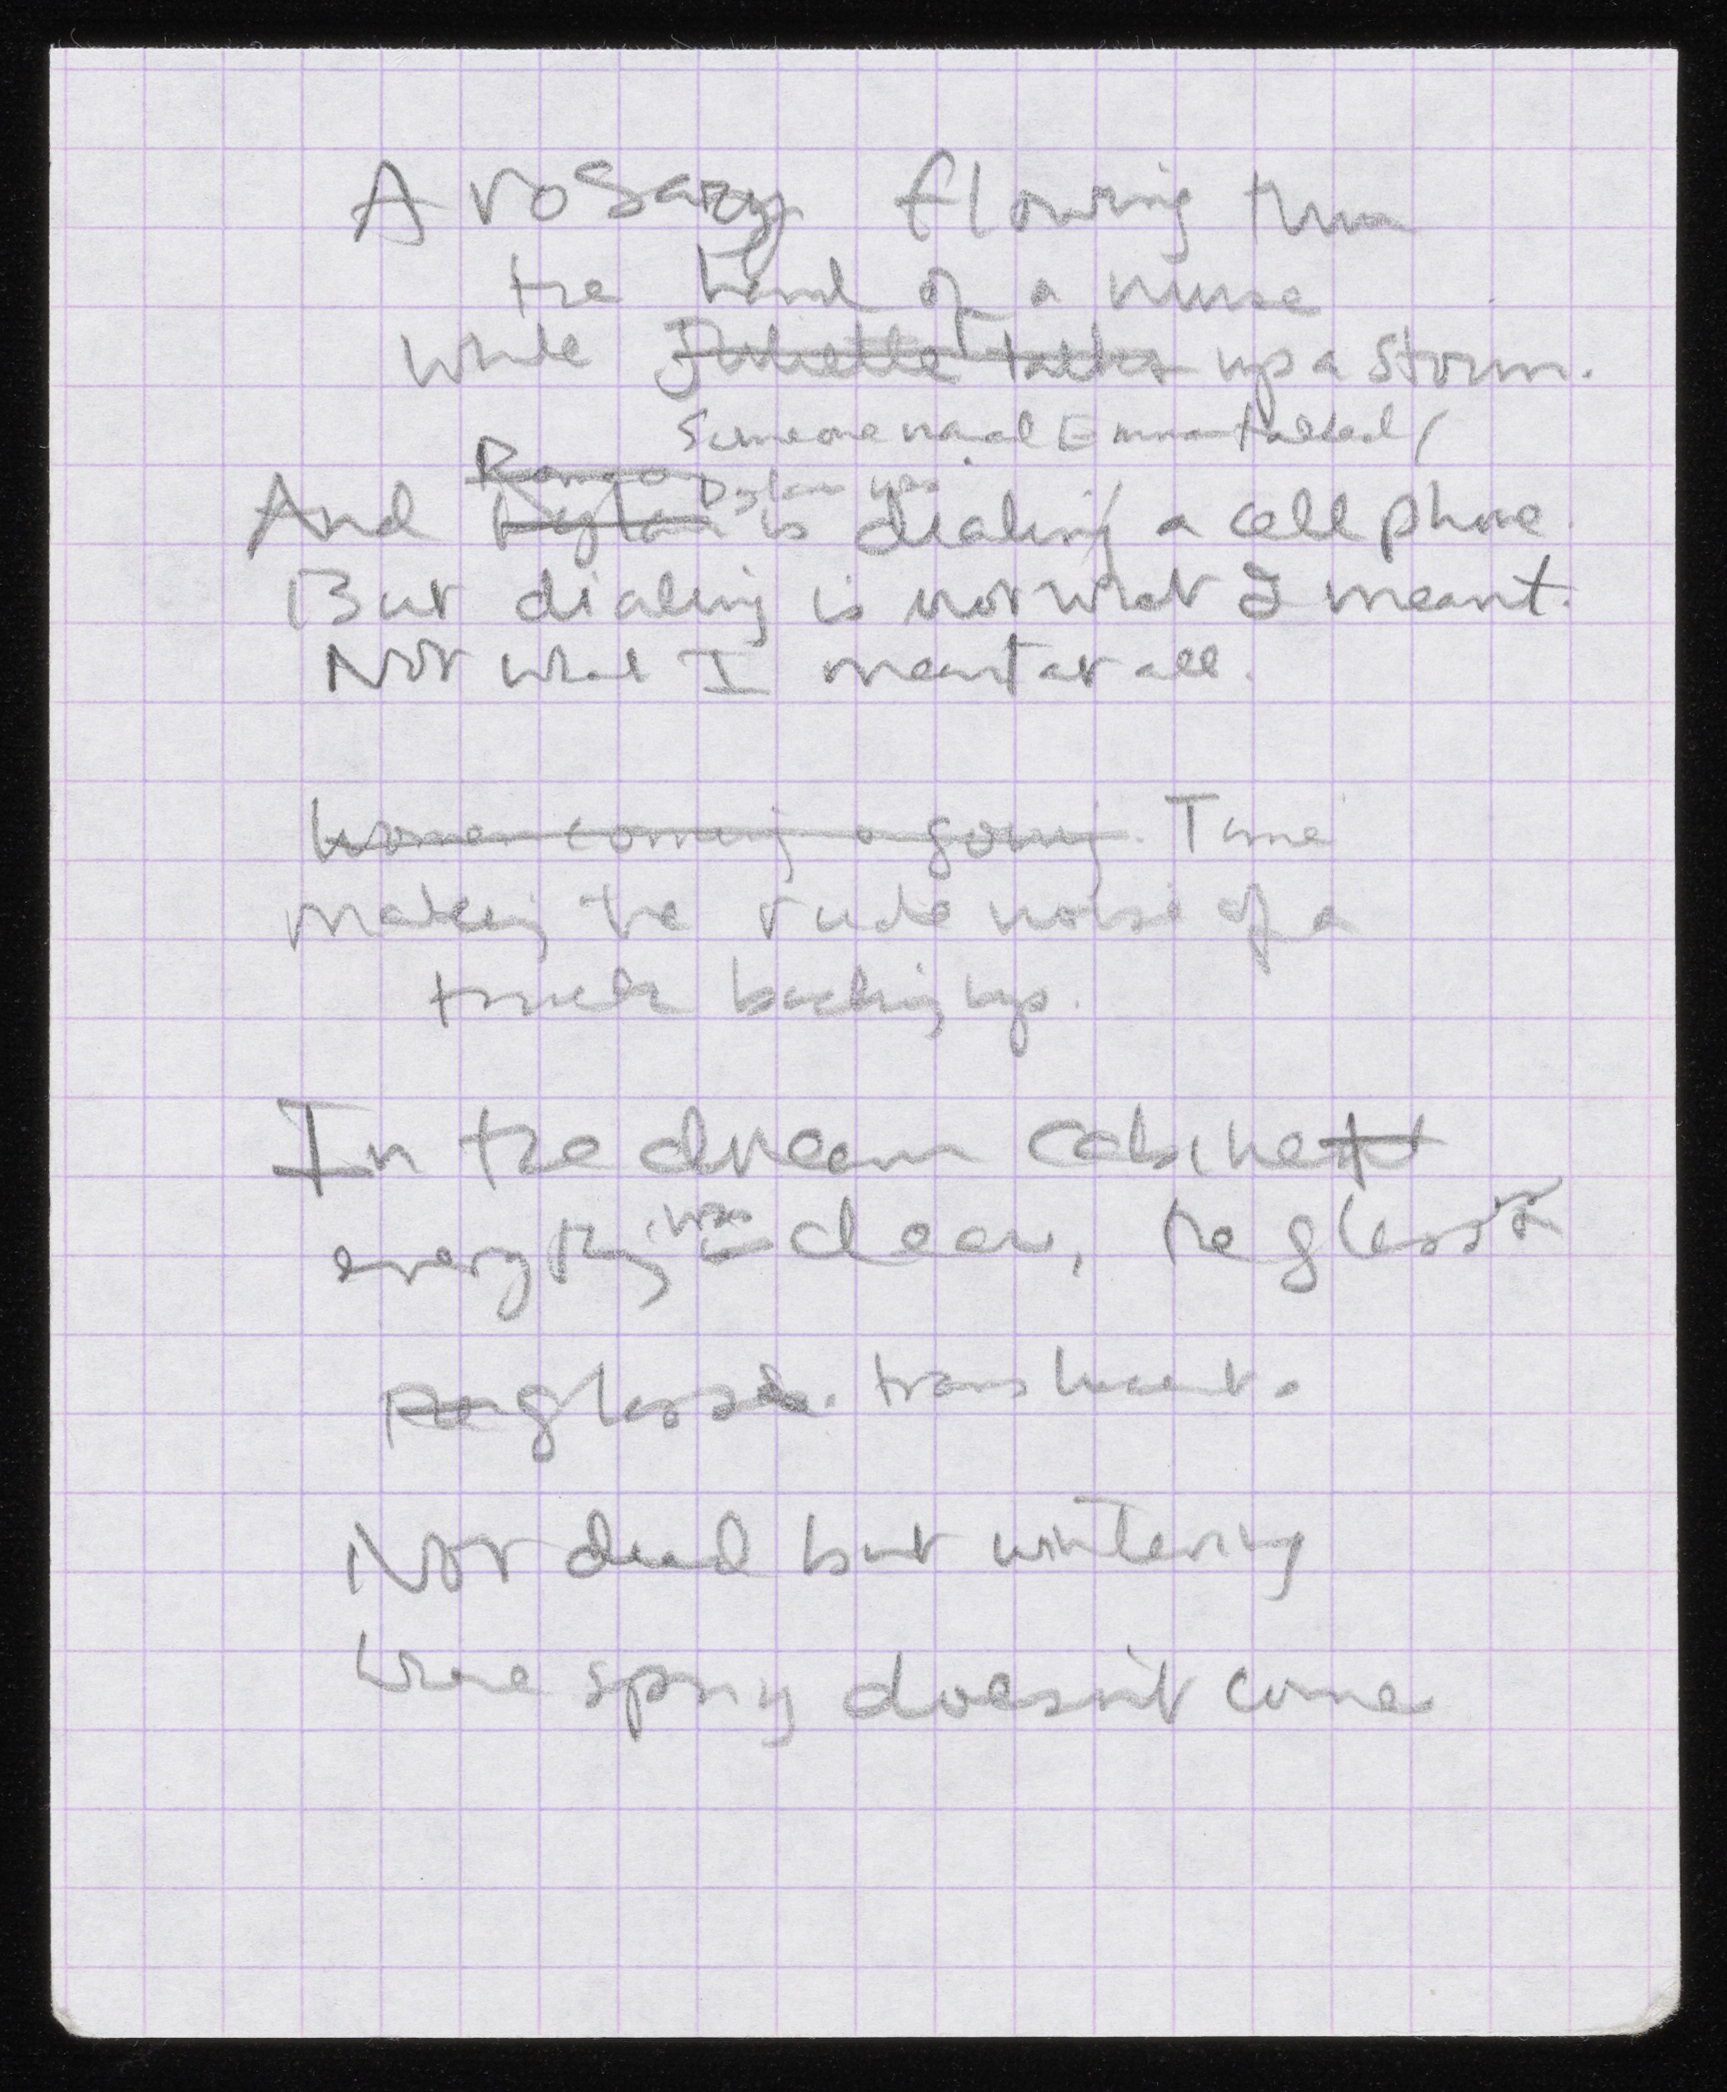 A rosary flowing thru
the hand of a nurse
while Juliette talks up a storm.
Someone named Emma talked
And Dylan Dylan was is dialing a cell phone
But dialing is not what I meant.
Not what I meant at all.
Women coming & going. Time
making the rude noise of a
truck backing up.
In the dream cabinet
everything was is clear, the glass
the glass is. translucent.
Not dead but wintering
where spring doesn't come